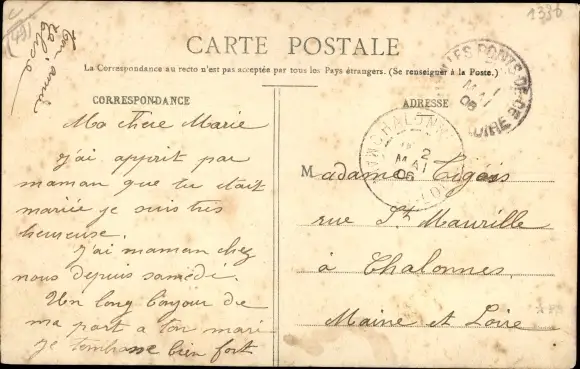 1336
(49)
Ton amie
Elise
CARTE POSTALE
La Correspondance au recto n'est pas acceptée par tous les Pays étrangers. (Se renseigner à la Poste.)
CORRESPONDANCE
Ma chere Marie
j'ai apprit par
maman que tu etait
mariée je suis très
heureuse.
J'ai maman chez
nous depuis samedi.
Un long bonjour de
ma part a ton mari
je t'embrasse bien fort
ADRESSE
LES PONTS-DE-CÉ
MAI
06
LOIRE
CHALONNES
2
MAI
06
Madame
rue St Maurille
à Chalonnes
Maine et Loire